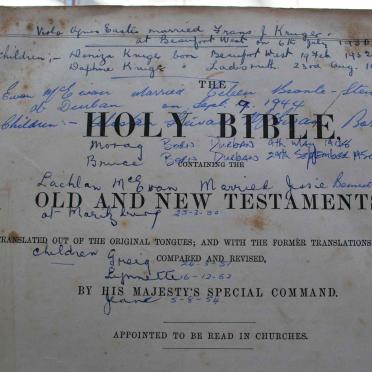 Viola Agnes Eastes married Frans J Kruger.
at Beaufort West on 6th July 1930
Children;- Deniza Kruger born Beaufort West 19 Feb 193
Daphne Kruge " Ladismith 23rd Aug. 19
THE
Ewan McEwan married Eileen
at Durban on Sept. 9 1944
Children:-
HOLY BIBLE,
Morag Born Durban 9th May
Bruce Born Durban 29th September 195
CONTAINING THE
Lachlan McEwan Married Jessie Bennet
OLD AND NEW TESTAMENTS
at Maritzburg
TRANSLATED OUT OF THE ORIGINAL TONGUES; AND WITH THE FORMER TRANSLATIONS
COMPARED AND REVISED,
Children Greig
Lynnette 16-12-52
BY HIS MAJESTY'S SPECIAL COMMAND.
Jeane 5-8-54
APPOINTED TO BE READ IN CHURCHES.